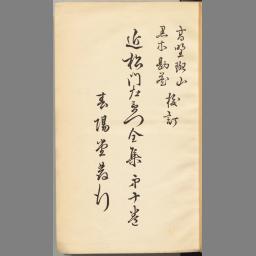 高野斑山
黒木勘蔵 校訂
近松門左衛門全集 第十巻
春陽堂發行